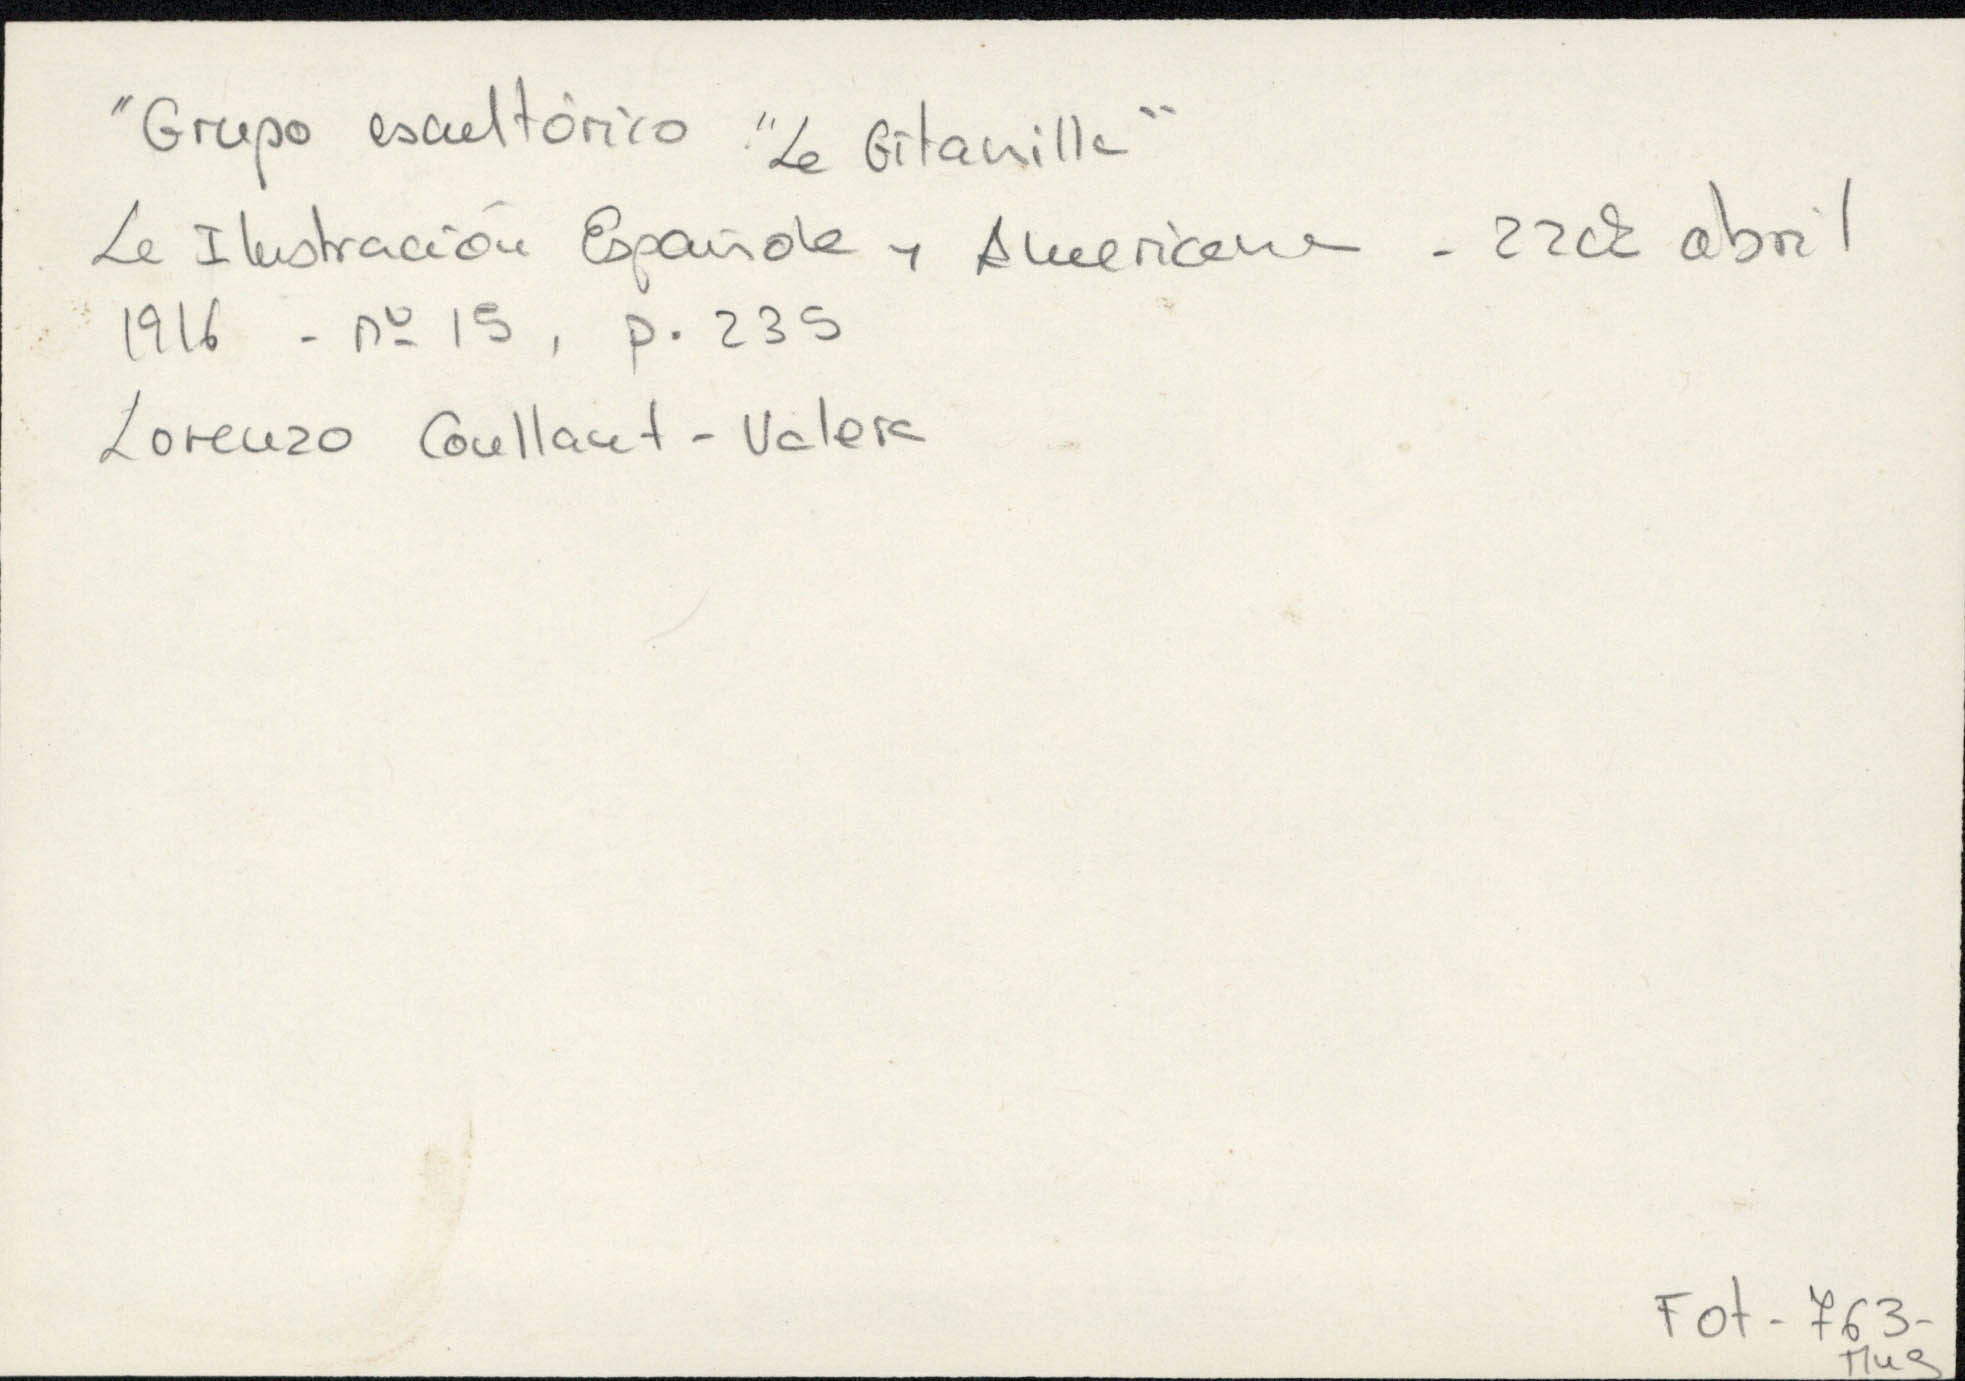 "Grupo escultórico "La Gitanilla"
La Ilustración Española y Americana - 22 de abril
1916 - nº 15, p. 235
Lorenzo Coullaut-Valera
Fot - 763-
Mus